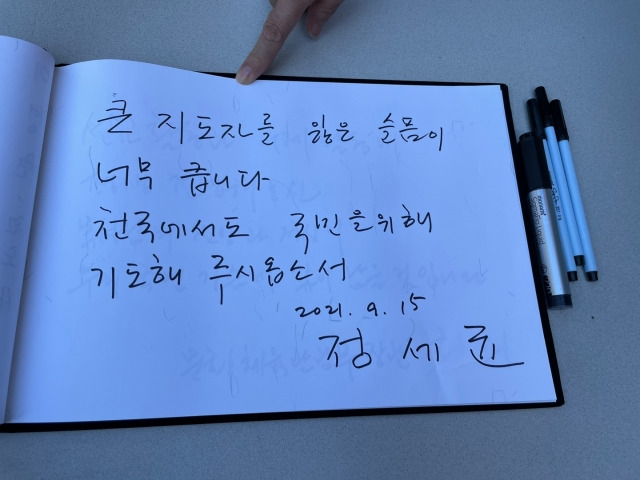 큰 지도자를 잃은 슬픔이
너무 큽니다
천국에서도 국민을위해
기도해 주시옵소서
2021. 9. 15
정 세 균